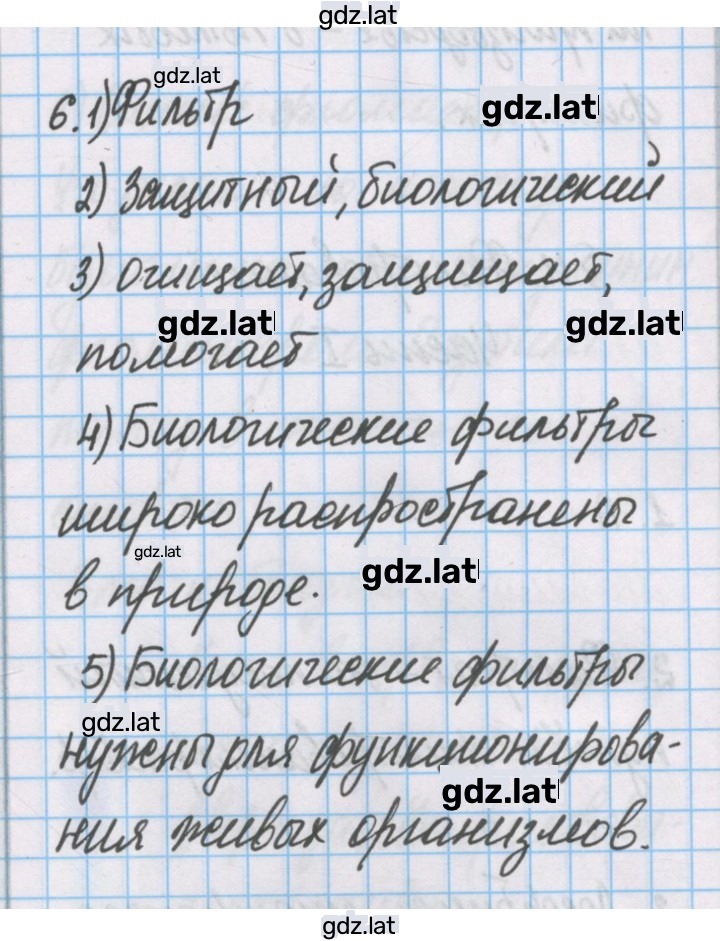 gdz.lat
gdz.lat
6. 1) Фильтр
gdz.lat
2) Защитный, биологический
3) Очищает, защищает,
gdz.lat
gdz.lat
помогает
4) Биологические фильтры
широко распространены
gdz.lat
gdz.lat
в природе.
5) Биологические фильтры
gdz.lat
нужны для функционирова-
gdz.lat
ния живых организмов.
gdz.lat